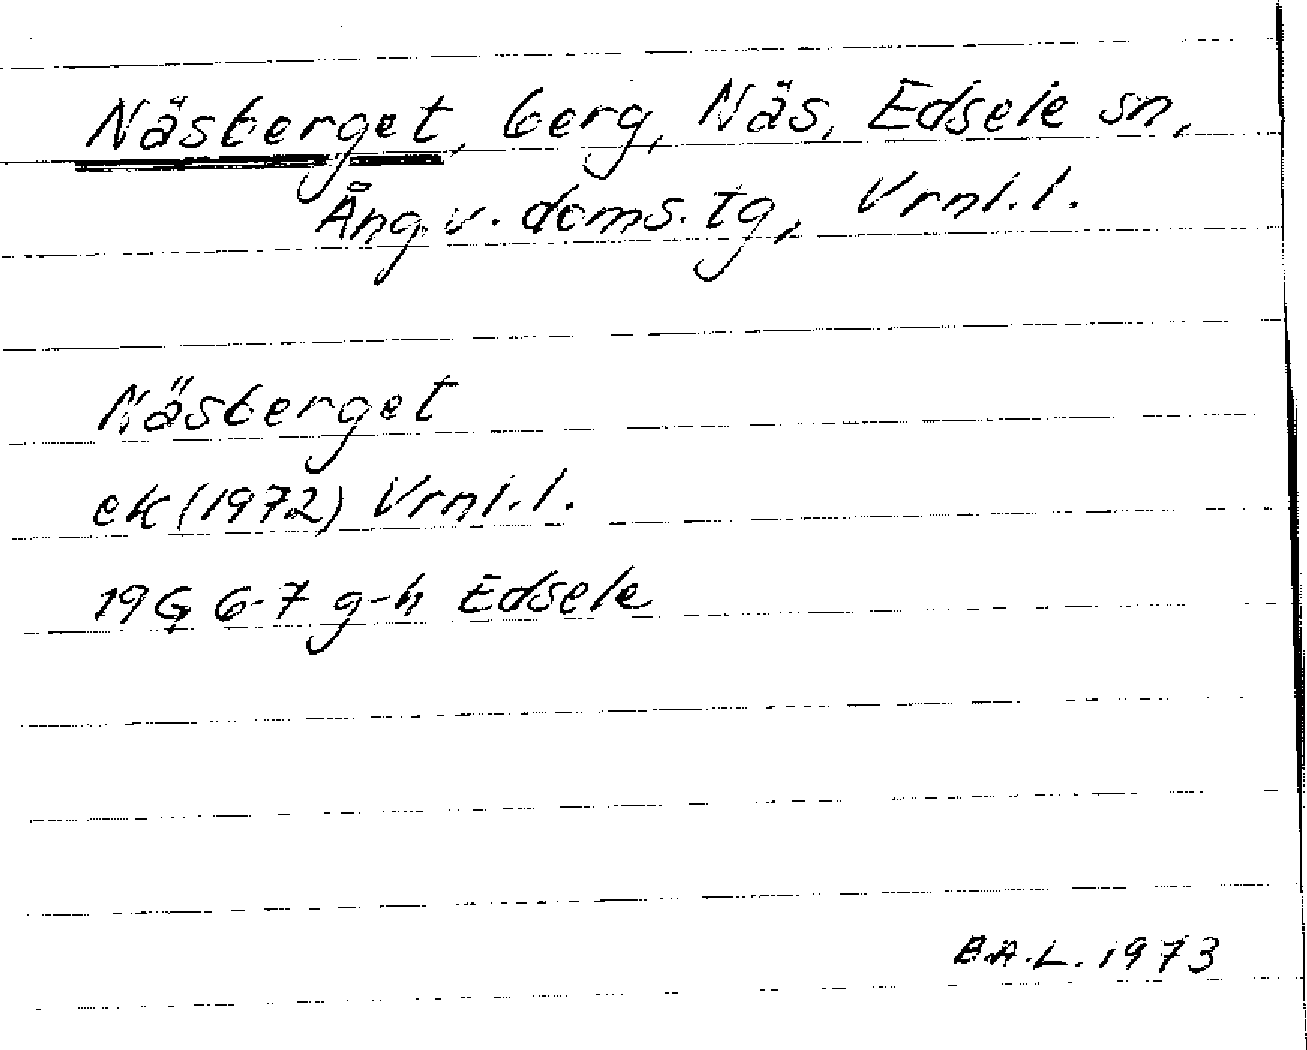 Näsberget, berg, Näs, Edsele sn,
Ång. v. doms. tg, Vrnl. l.
Näsberget
ek (1972) Vrnl. l.
19G 6-7 g-h Edsele
B.A.L. 1973